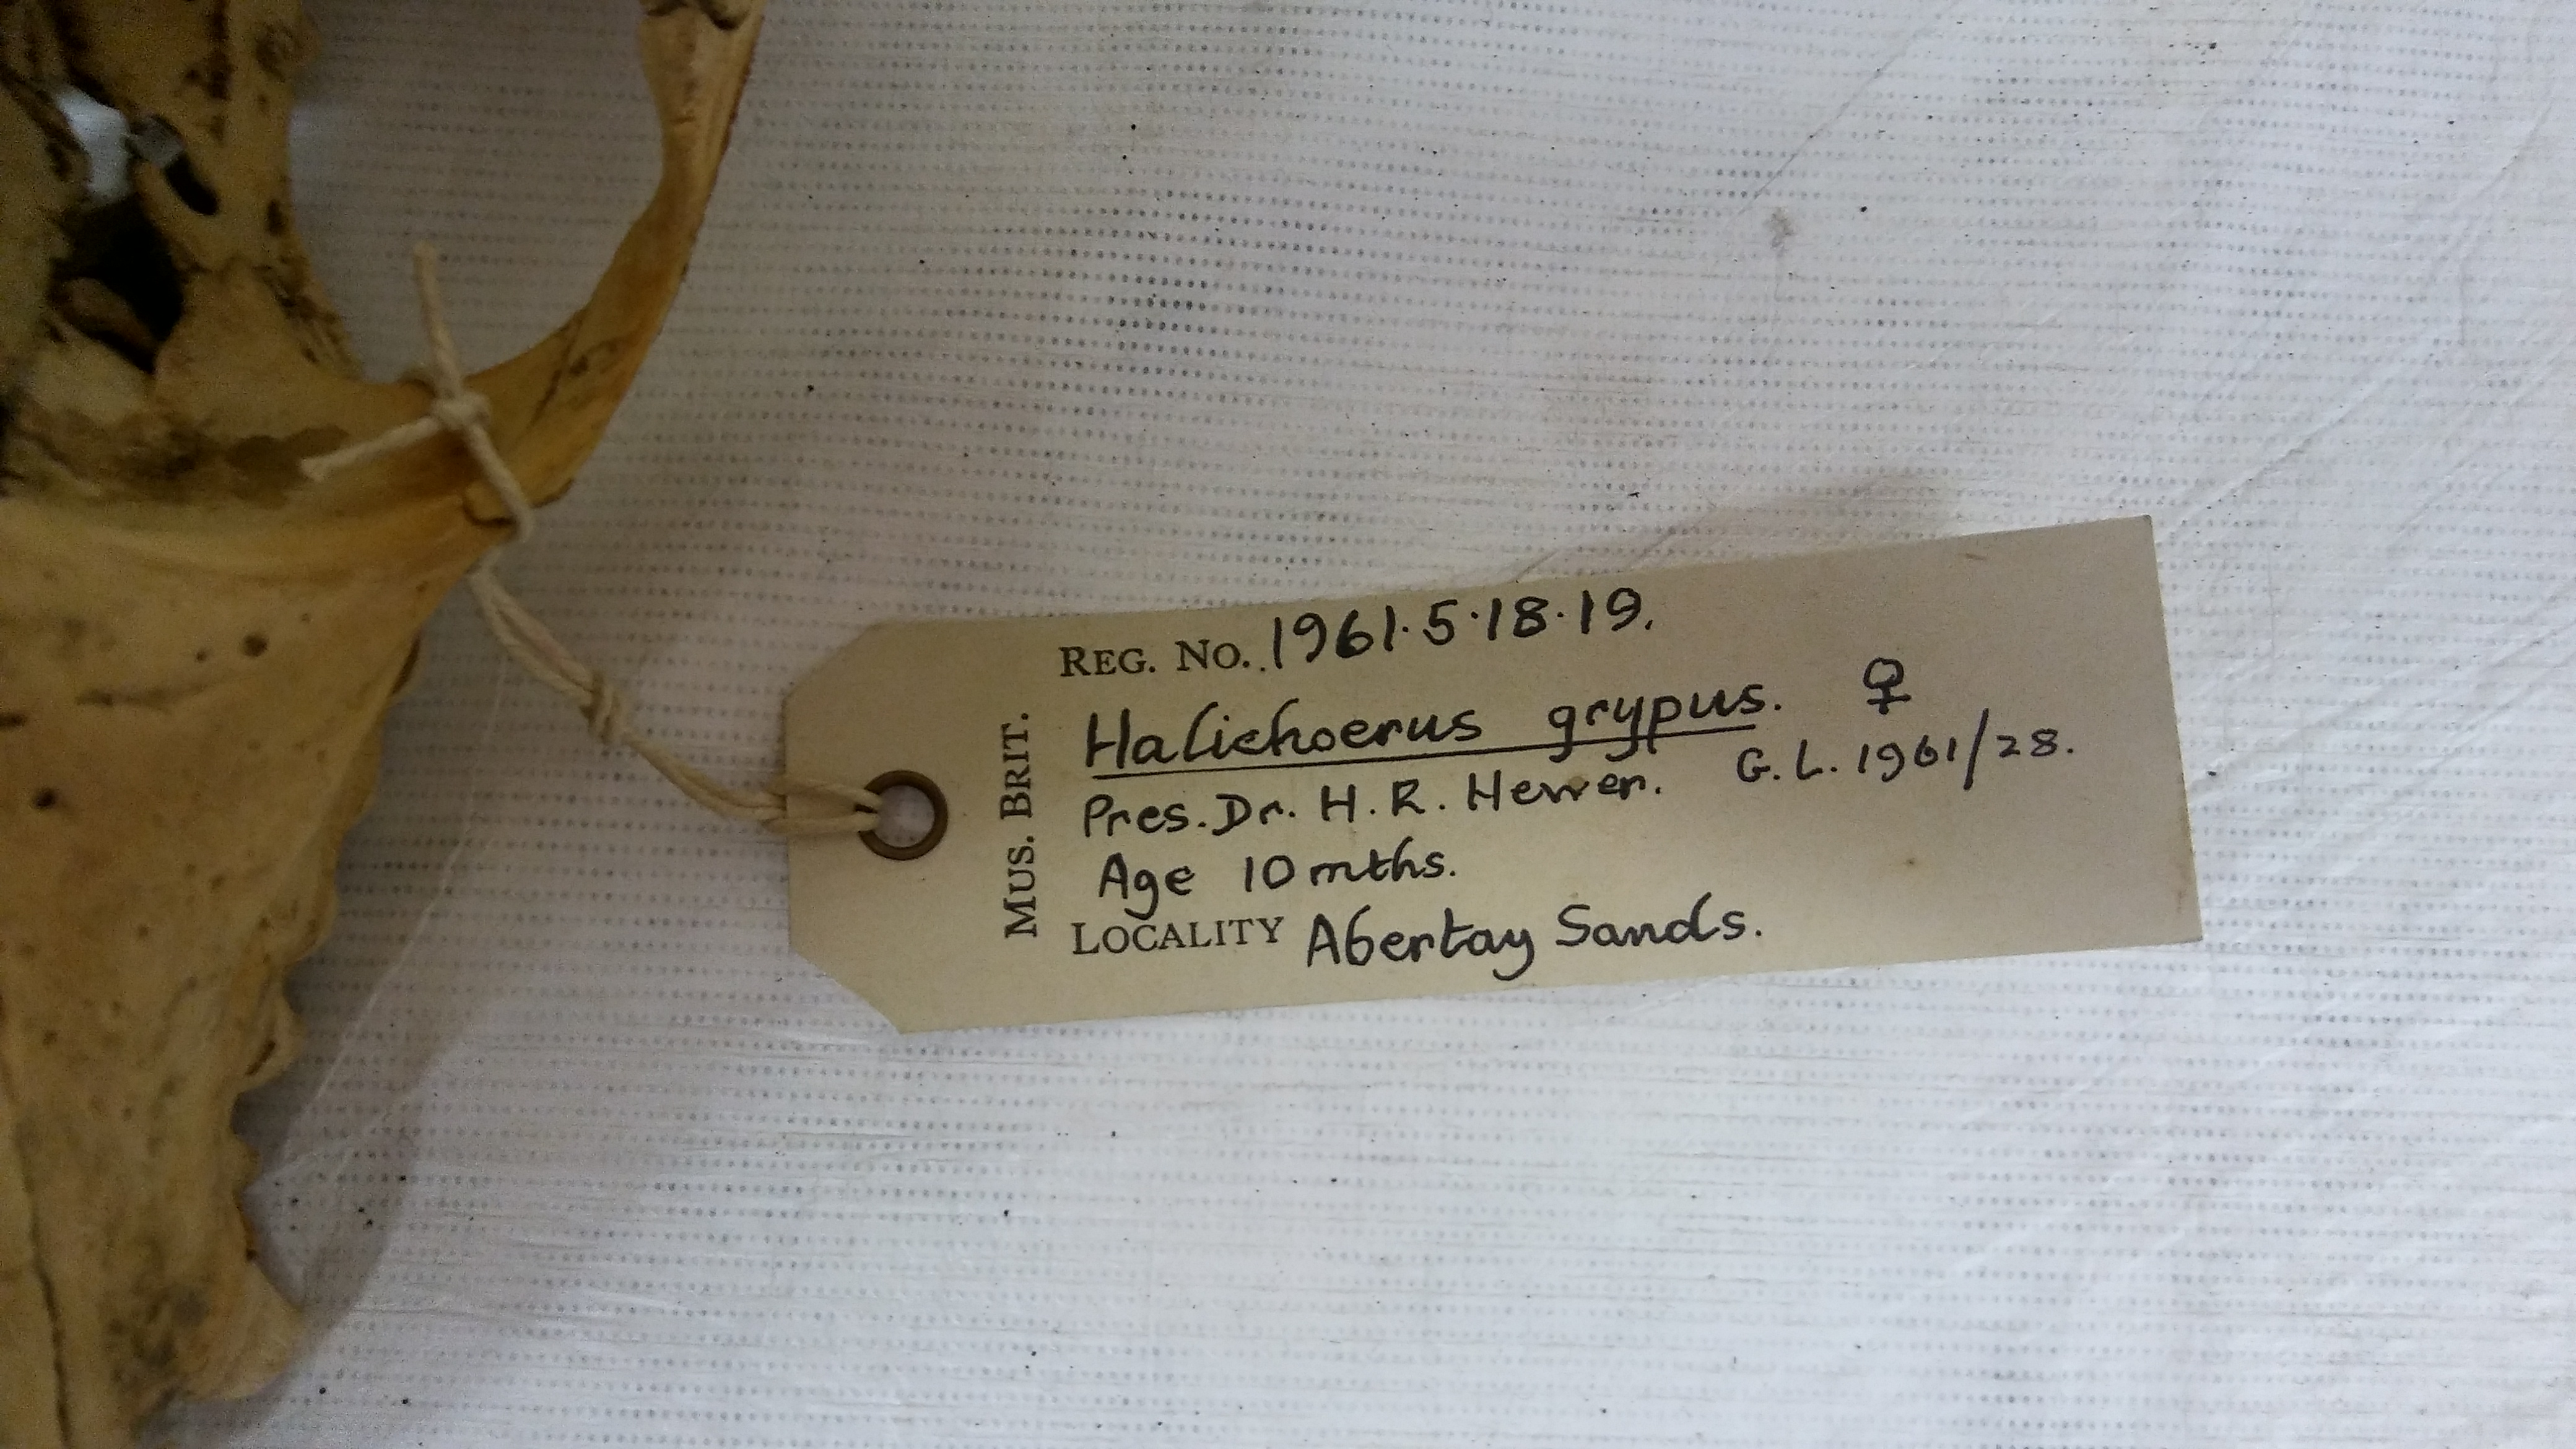 MUS. BRIT.
REG. NO. 1961.5.18.19.
Halichoerus grypus. ♀
Pres. Dr. H. R. Hewer. G.L. 1961/28.
Age 10 mths.
LOCALITY Abertay Sands.